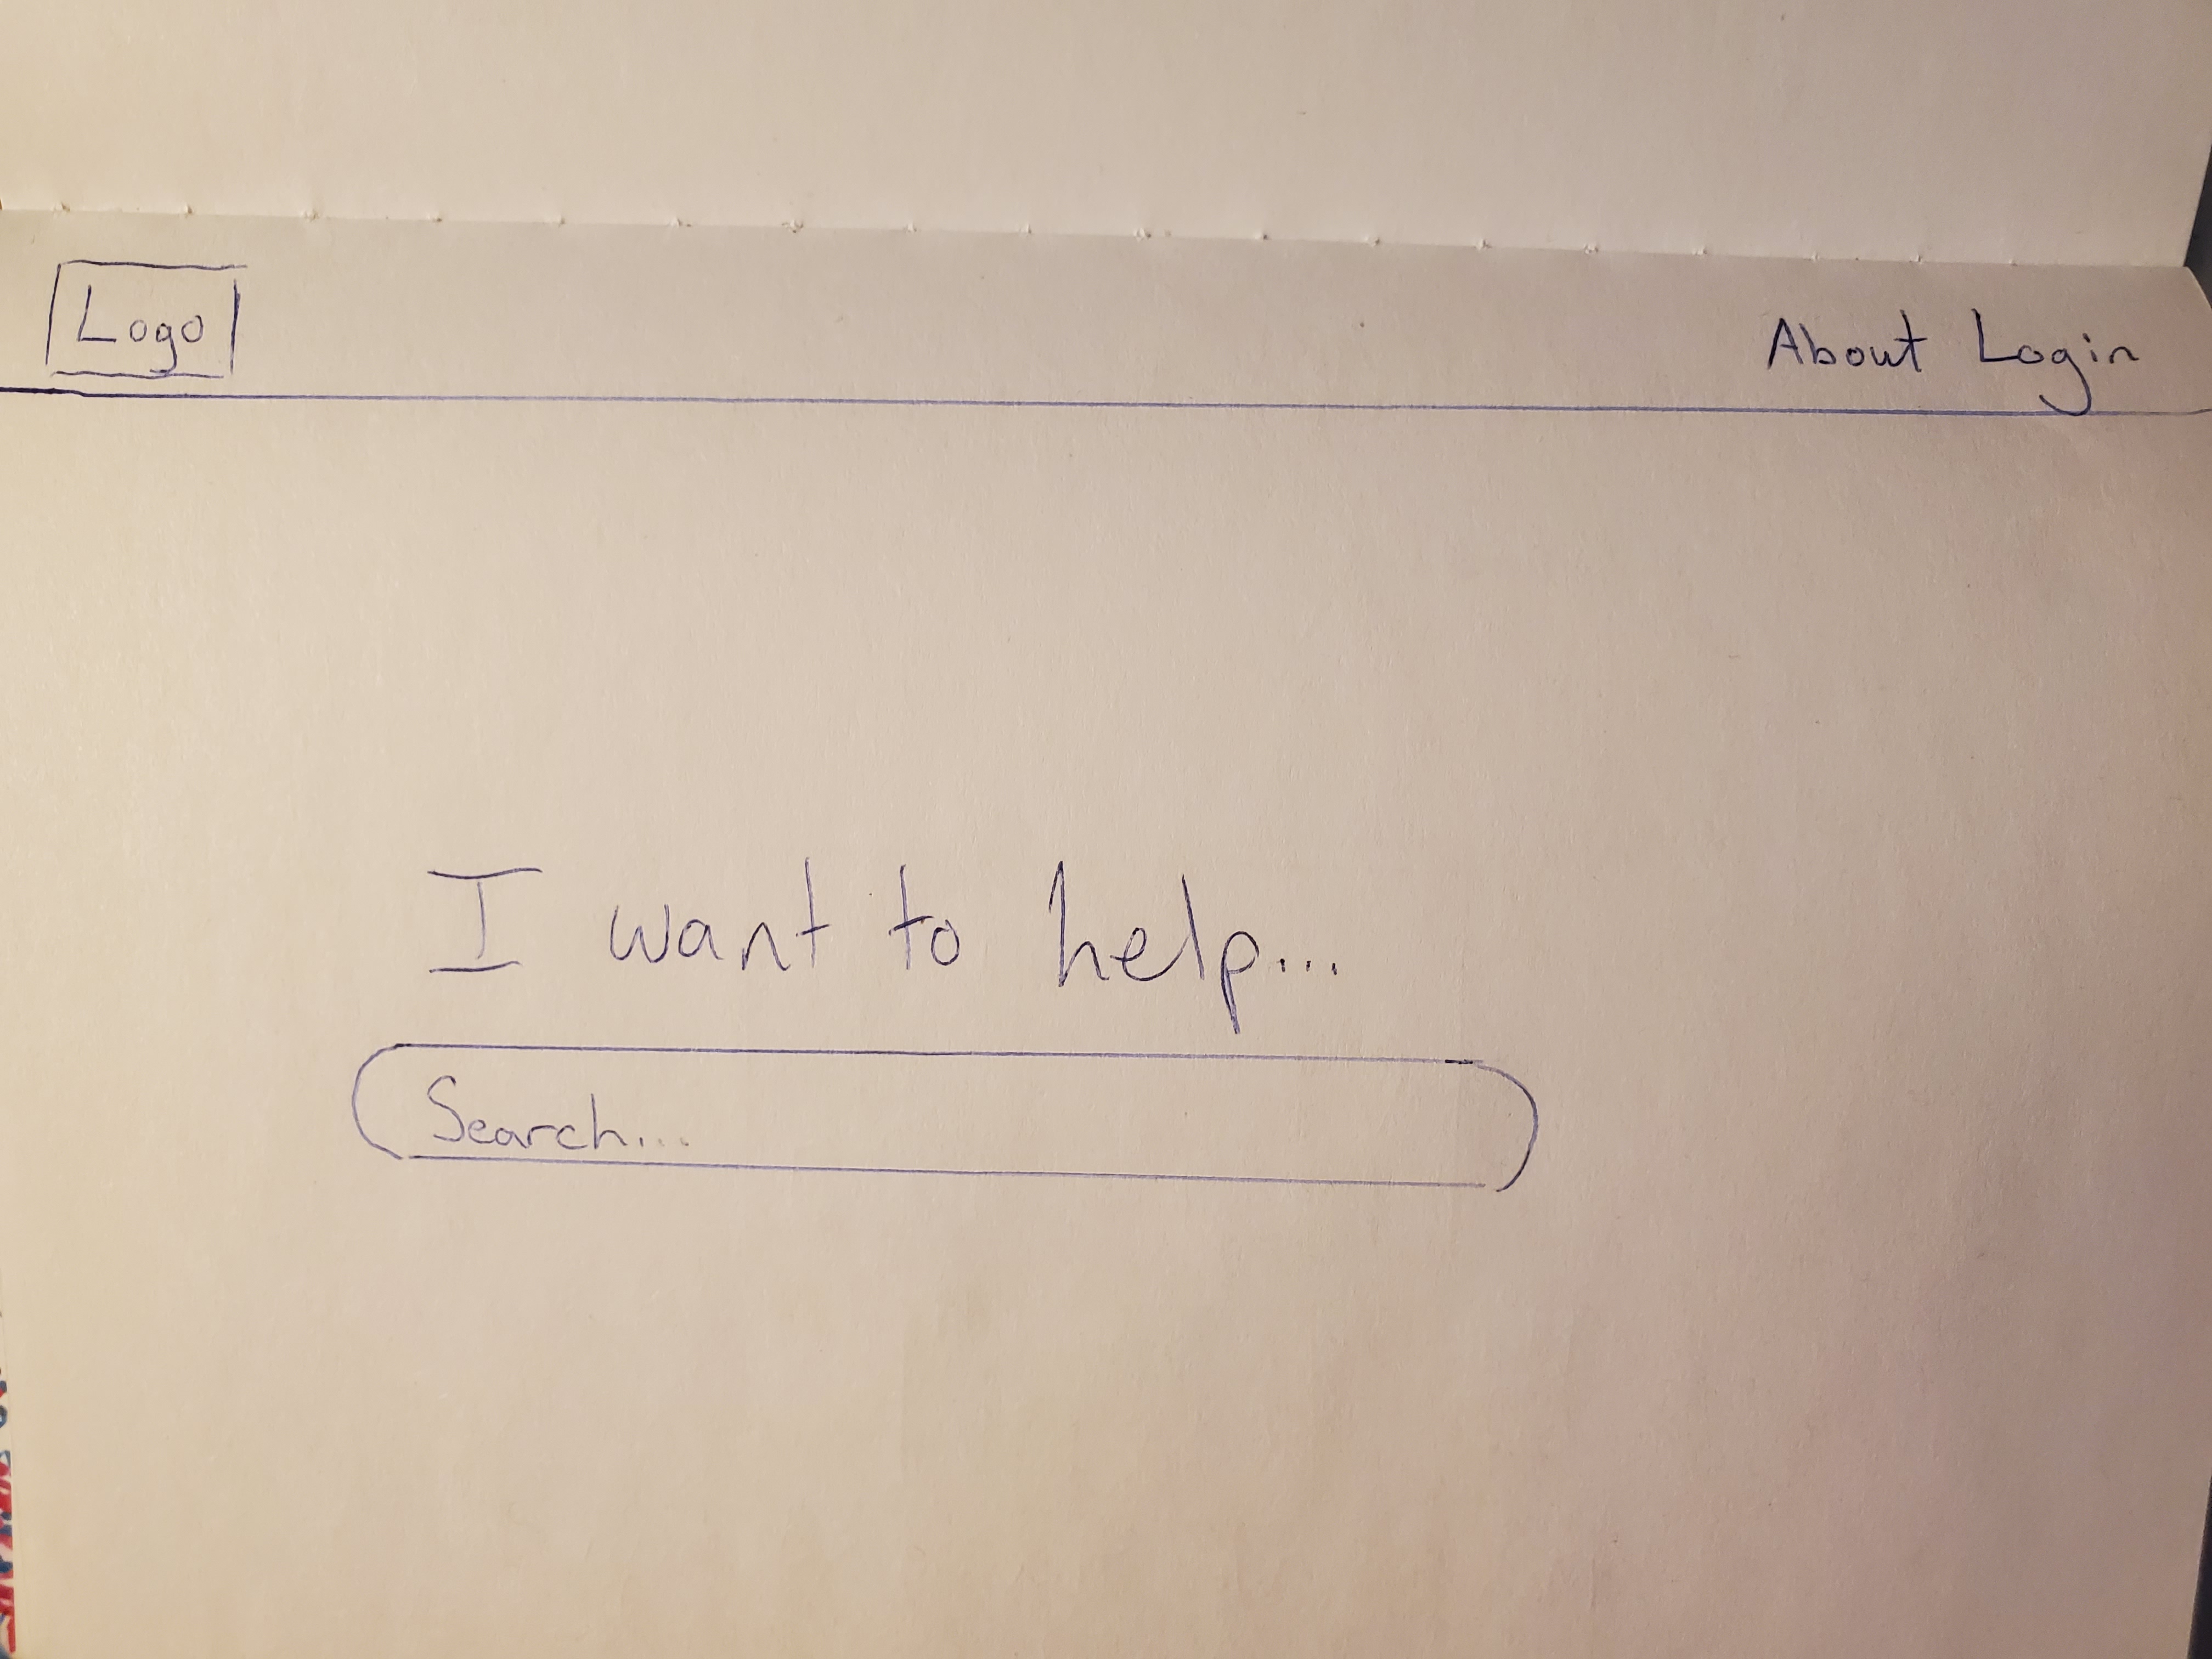 Logo
About Login
I want to help...
Search...